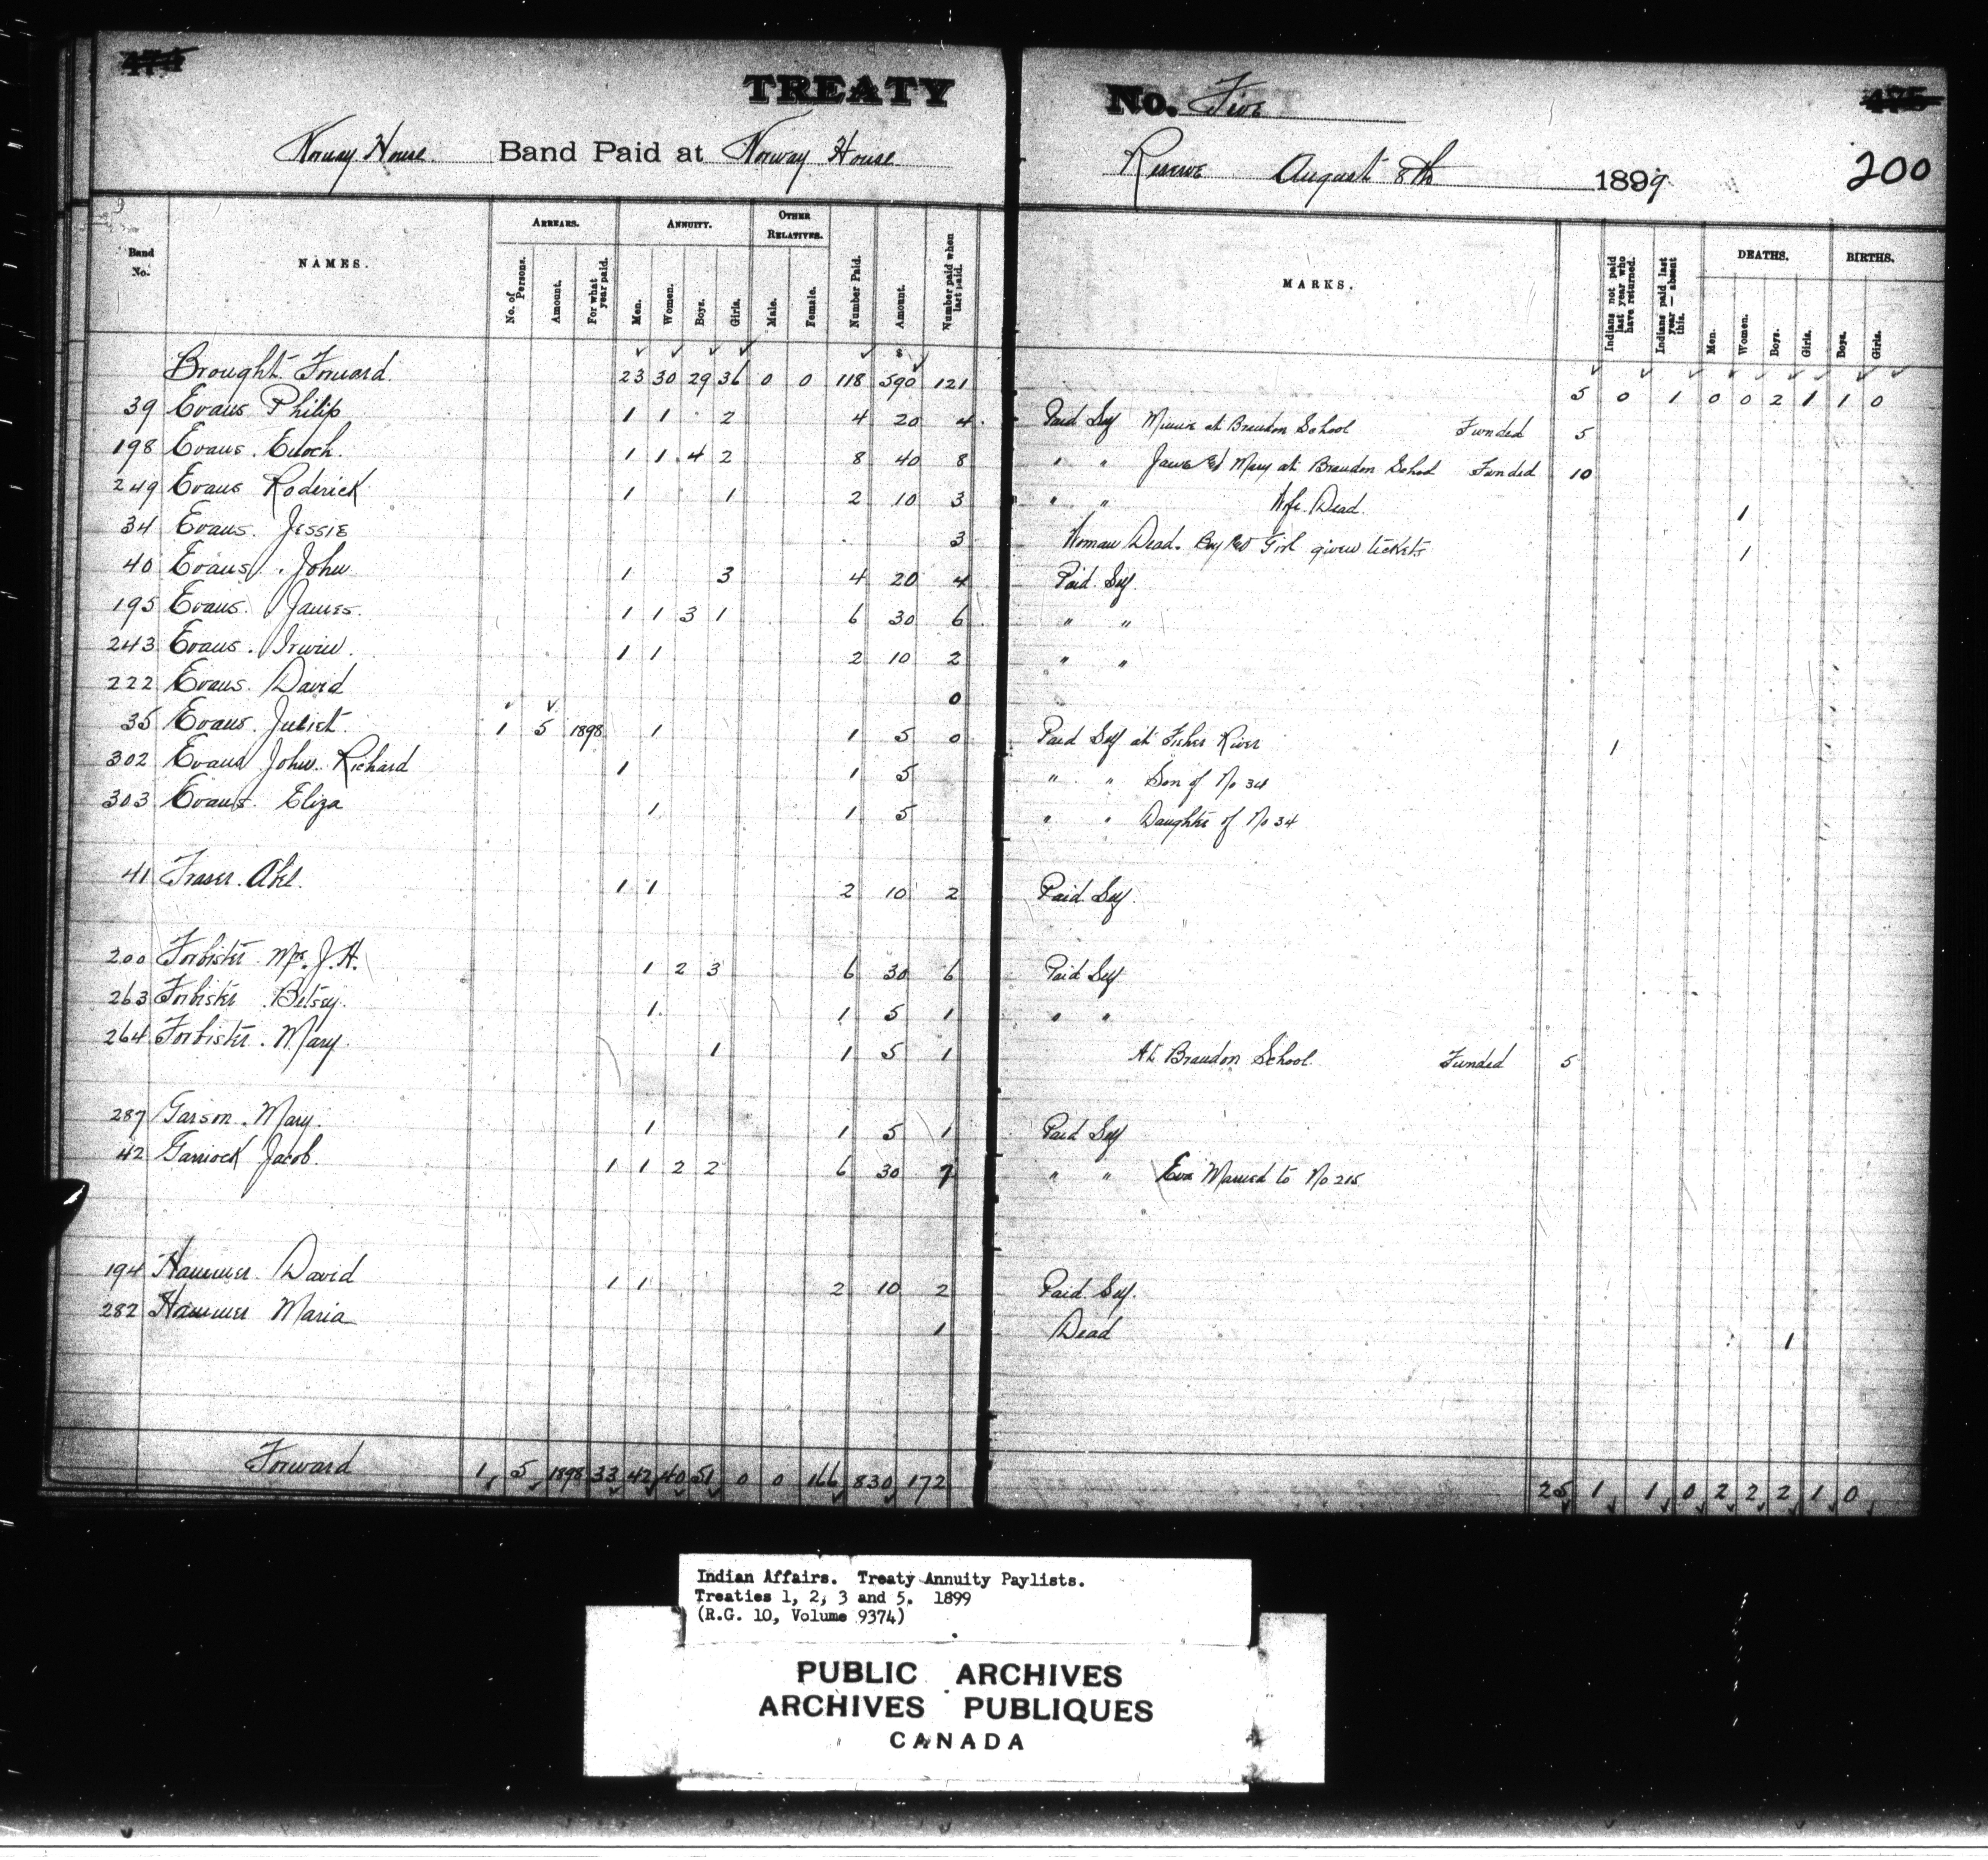 474
TREATY No. Five 475
Norway House Band Paid at Norway House Reserve August 8th 1899 200
Band No. NAMES. ARREARS. ANNUITY. OTHER RELATIVES. Number Paid. Amount. Number paid when last paid. MARKS. Indians not paid last year who have returned. Indians paid last year — absent this. DEATHS. BIRTHS.
No. of Persons. Amount. For what year paid. Men. Women. Boys. Girls. Male. Female. Men. Women. Boys. Girls. Boys. Girls.
Brought Forward. 23 30 29 36 0 0 118 $590 121 5 0 1 0 0 2 1 1 0
39 Evans Philip 1 1 2 4 20 4 Paid Self at Brandon School Funded 5
198 Evans. Enoch. 1 1 4 2 8 40 8 " " Mary at Brandon School Funded 10
249 Evans Roderick 1 1 2 10 3 " " Wife Dead. 1
34 Evans. Jessie 3 Woman Dead. Boy & Girl given tickets 1
40 Evans. John 1 3 4 20 4 Paid Self.
195 Evans. James. 1 1 3 1 6 30 6 " "
243 Evans. Irwin. 1 1 2 10 2 " "
222 Evans. David 0
35 Evans. Juliet. 1 5 1898 1 1 5 0 Paid Self at Fisher River 1
302 Evans John Richard 1 1 5 " " Son of No 34
303 Evans. Eliza 1 1 5 " " Daughter of No 34
41 Fraser. Abel. 1 1 2 10 2 Paid Self.
200 Forbister Mrs. J. H. 1 2 3 6 30 6 Paid Self
263 Forbister Betsey. 1 1 5 1 " "
264 Forbister. Mary. 1 1 5 1 At Brandon School. Funded 5
287 Garson. Mary. 1 1 5 1 Paid Self
42 Garriock Jacob. 1 1 2 2 6 30 7 " " Eva Married to No 215
194 Hammer David 1 1 2 10 2 Paid Self.
282 Hammer Maria 1 Dead 1
Forward 1 5 1898 33 42 40 51 0 0 166 830 172 25 1 1 0 2 2 2 1 0
Indian Affairs. Treaty Annuity Paylists.
Treaties 1, 2, 3 and 5. 1899
(R.G. 10, Volume 9374)
PUBLIC ARCHIVES
ARCHIVES PUBLIQUES
CANADA